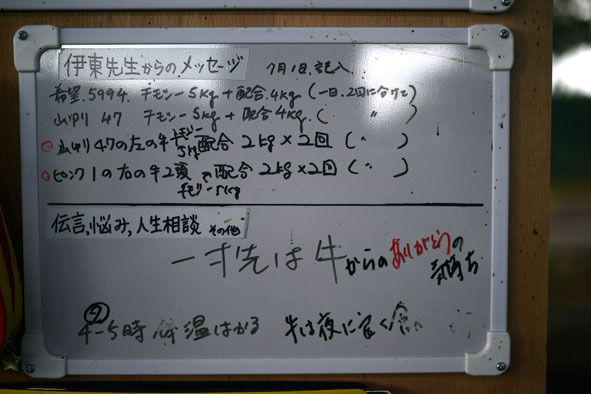 伊東先生からのメッセージ 7月1日.記入
希望.5994. チモシー5kg+配合.4kg.(一日.2回に分けて)
山ゆり 47 チモシー5kg+配合4kg.( 〃 )
山ゆり47の左の牛 チモシー5kg 配合2kg×2回(〃 )
ピンク1の右の牛2頭 〃配合2kg×2回(〃 )
チモシー5kg
伝言,悩み,人生相談 その他
一寸先は牛からのありがとうの気持ち
4-5時 体温はかる 牛は夜に良く